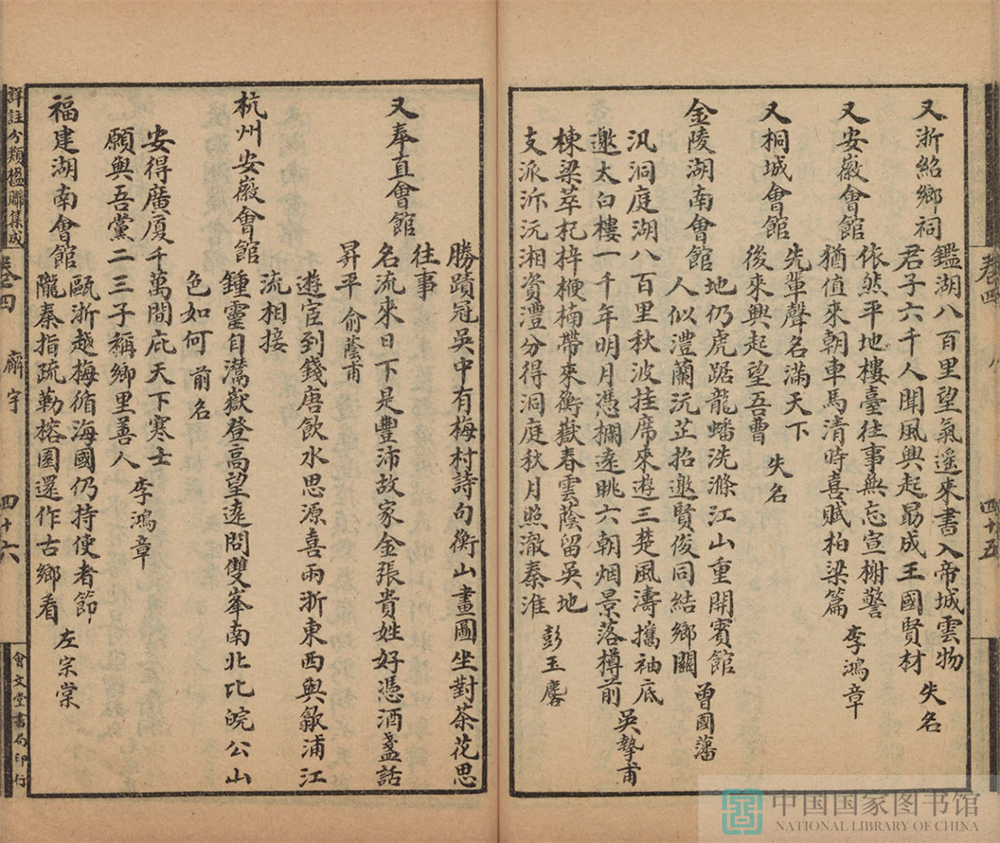 又浙紹鄉祠
鑑湖八百里望氣遥來書入帝城雲物
君子六千人聞風興起勗成王國賢材 失名
又安徽會館
依然平地樓臺往事無忘宣榭警
猶值來朝車馬清時喜賦柏梁篇 李鴻章
又桐城會館
先輩聲名滿天下
後來興起望吾曹 失名
金陵湖南會館
地仍虎踞龍蟠洗滌江山重開賓館
人似澧蘭沅芷招邀賢俊同結鄉關 曾國藩
汎洞庭湖八百里秋波挂席來遊三楚風濤攜袖底
邀太白樓一千年明月憑攔遠眺六朝烟景落樽前 吳摯甫
棟梁萃杞梓楩楠帶來衡嶽春雲蔭留吳地
支派泝沅湘資澧分得洞庭秋月照澈秦淮 彭玉麐
卷四
四十五
勝蹟冠吳中有梅村詩句衡山畫圖坐對茶花思
往事
又奉直會館
名流來日下是豐沛故家金張貴姓好憑酒盞話
昇平 俞蔭甫
遊宦到錢唐飲水思源喜兩浙東西與歙浦江
流相接
杭州安徽會館
鍾靈自灊嶽登高望遠問雙峯南北比皖公山
色如何 前名
安得廣廈千萬間庇天下寒士
願與吾黨二三子稱鄉里善人 李鴻章
福建湖南會館
甌浙越梅循海國仍持使者節
隴秦指疏勒榕園還作古鄉看 左宗棠
詳註分類楹聯集成
卷四
齊字
四十六
會文堂書局印行
中国国家图书馆
NATIONAL LIBRARY OF CHINA